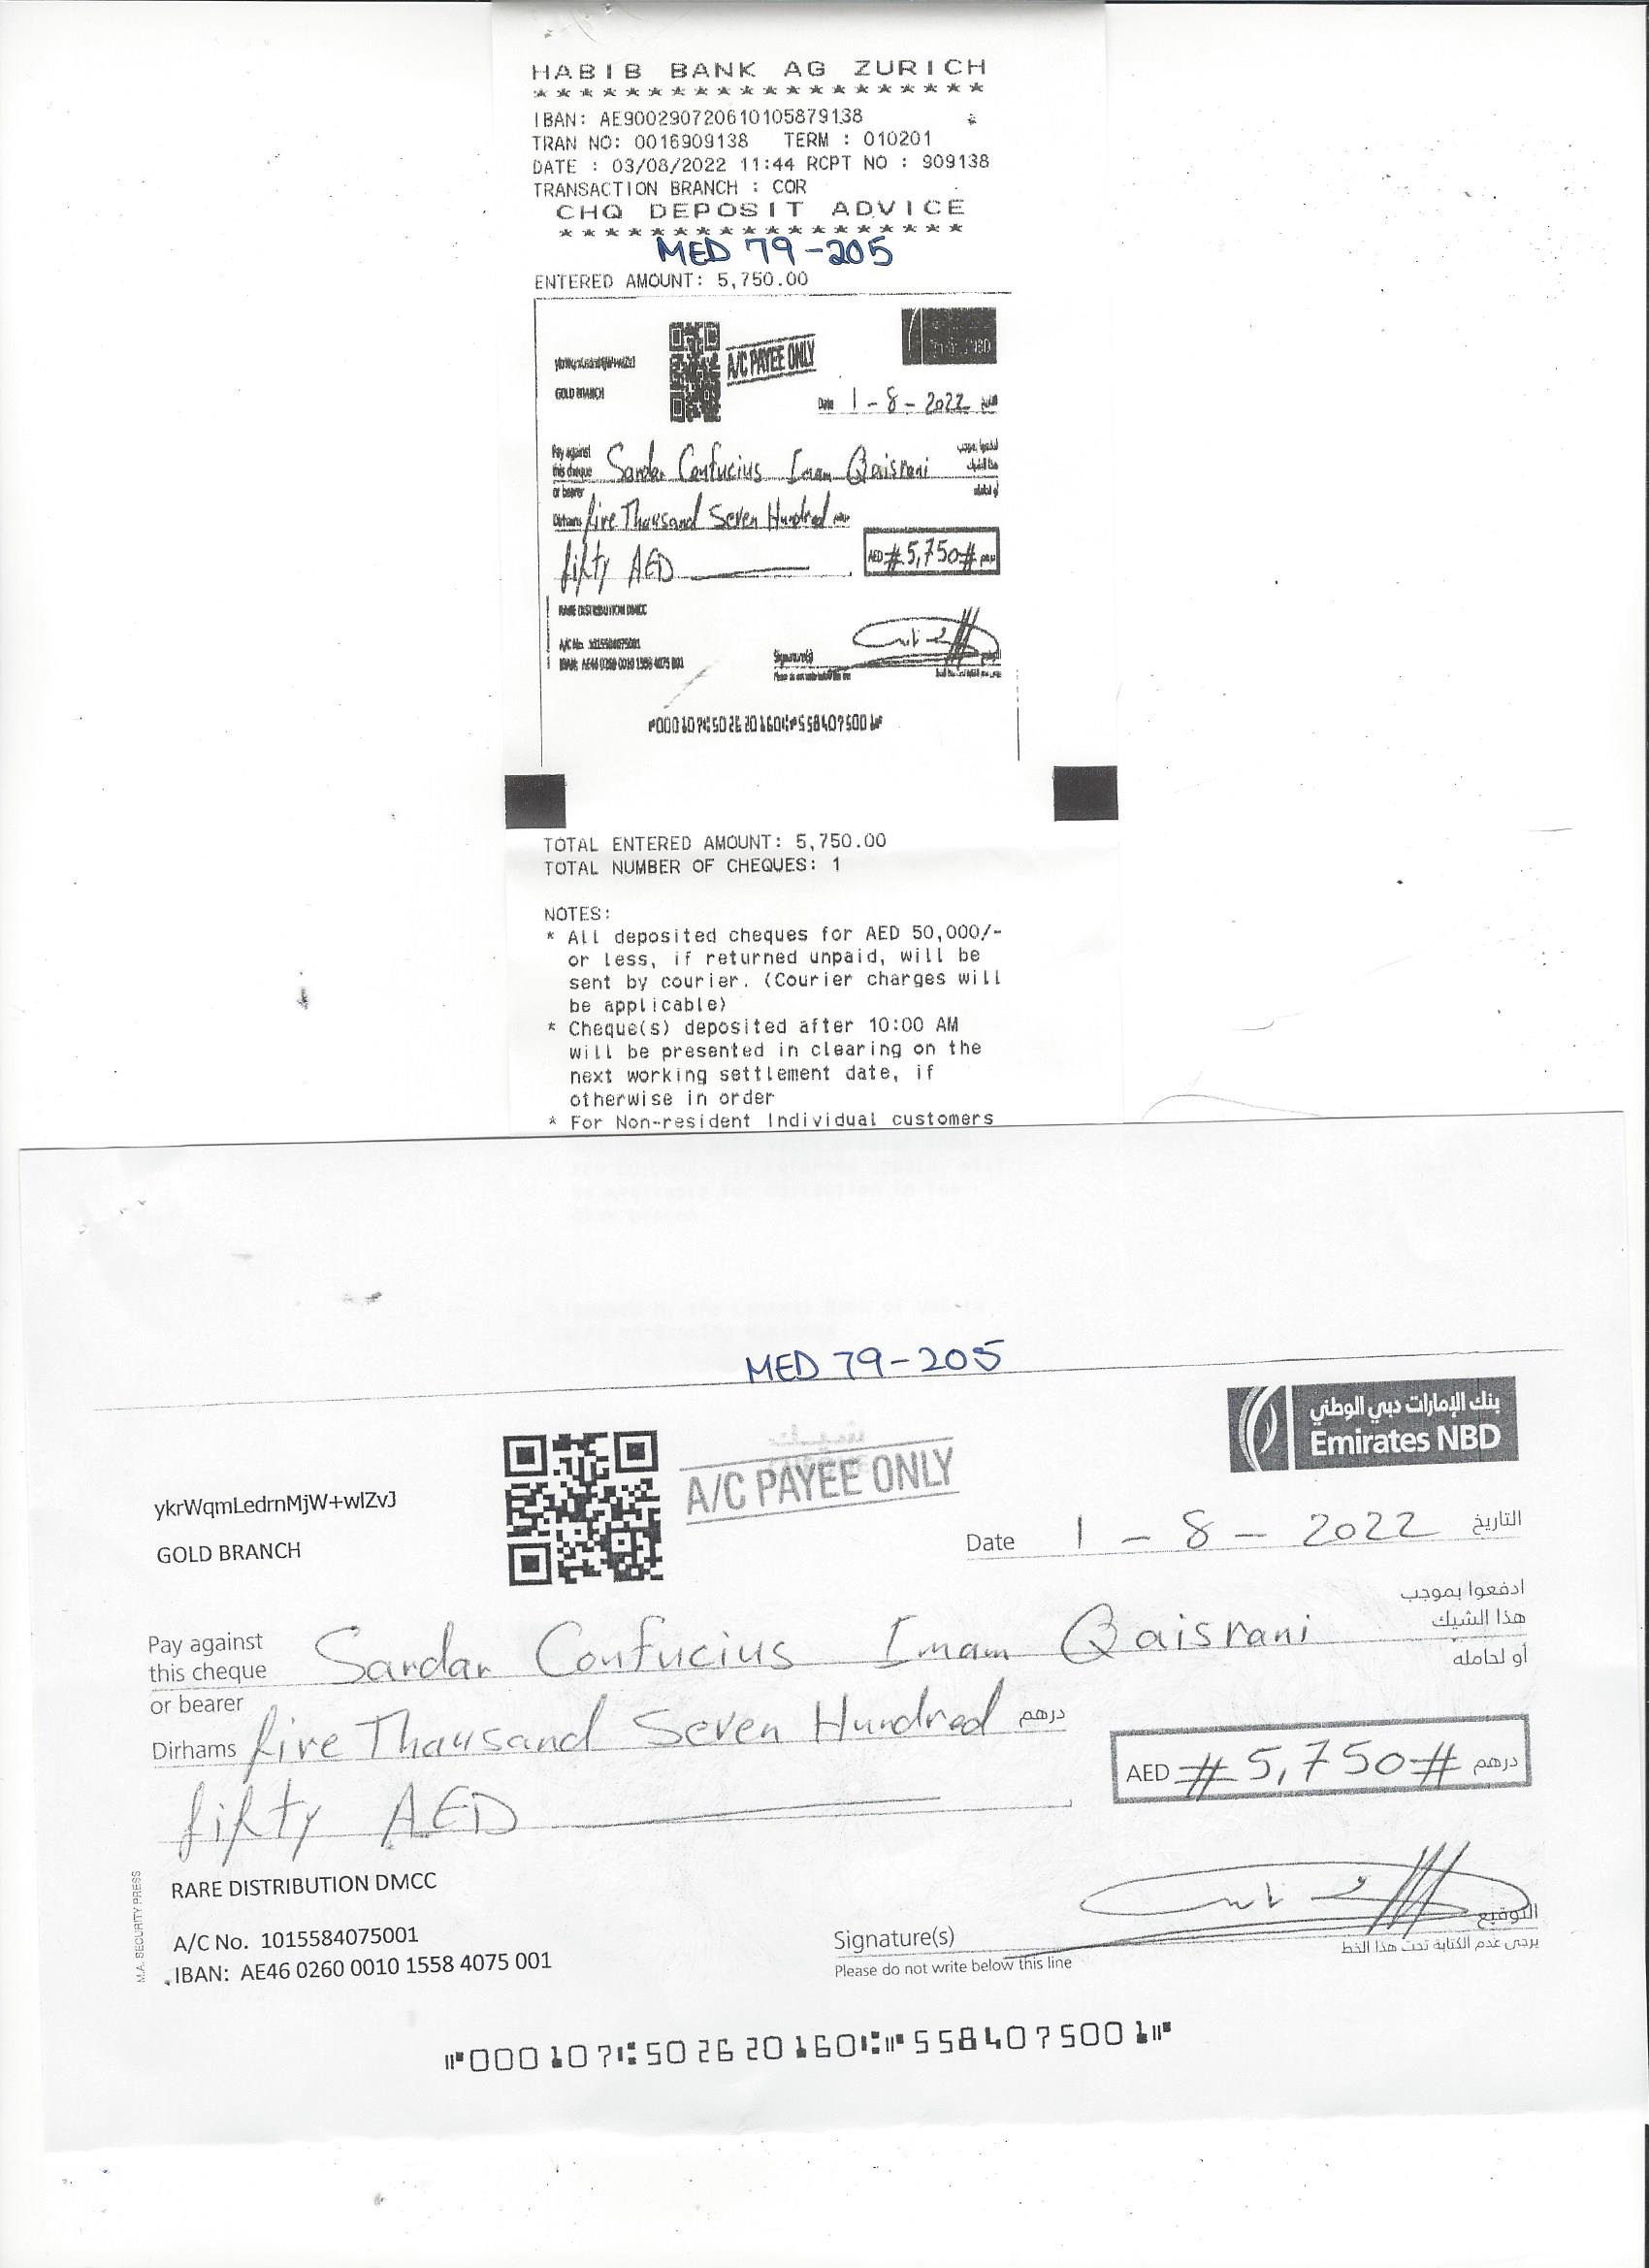 HABIB BANK AG ZURICH
* * * * * * * * * * * * * * * * * * * *
IBAN: AE900290720610105879138
TRAN NO: 0016909138 TERM : 010201
DATE : 03/08/2022 11:44 RCPT NO : 909138
TRANSACTION BRANCH : COR
CHQ DEPOSIT ADVICE
* * * * * * * * * * * * * * * * * *
MED 79-205
ENTERED AMOUNT: 5,750.00
A/C PAYEE ONLY
GOLD BRANCH
Date 1-8-2022 التاريخ
Pay against ادفعوا بموجب
this cheque Sardar Confucius Imam Qaisrani هذا الشيك
or bearer أو لحامله
Dirhams five Thousand Seven Hundred درهم
fifty AED AED #5,750# درهم
RARE DISTRIBUTION DMCC
A/C No. 1015584075001
IBAN: AE46 0260 0010 1558 4075 001
Signature(s) التوقيع
Please do not write below this line يرجى عدم الكتابة تحت هذا الخط
⑈000107⑆502620160⑆⑈5584075001⑈
TOTAL ENTERED AMOUNT: 5,750.00
TOTAL NUMBER OF CHEQUES: 1
NOTES:
* All deposited cheques for AED 50,000/-
or less, if returned unpaid, will be
sent by courier. (Courier charges will
be applicable)
* Cheque(s) deposited after 10:00 AM
will be presented in clearing on the
next working settlement date, if
otherwise in order
* For Non-resident Individual customers
MED 79-205
بنك الإمارات دبي الوطني
Emirates NBD
A/C PAYEE ONLY
ykrWqmLedrnMjW+wlZvJ
GOLD BRANCH
Date 1 - 8 - 2022 التاريخ
Pay against ادفعوا بموجب
this cheque Sardar Confucius Imam Qaisrani هذا الشيك
or bearer أو لحامله
Dirhams five Thousand Seven Hundred درهم
fifty AED AED #5,750# درهم
M.A. SECURITY PRESS
RARE DISTRIBUTION DMCC
A/C No. 1015584075001
IBAN: AE46 0260 0010 1558 4075 001
Signature(s) التوقيع
Please do not write below this line يرجى عدم الكتابة تحت هذا الخط
⑈000107⑆502620160⑆⑈5584075001⑈